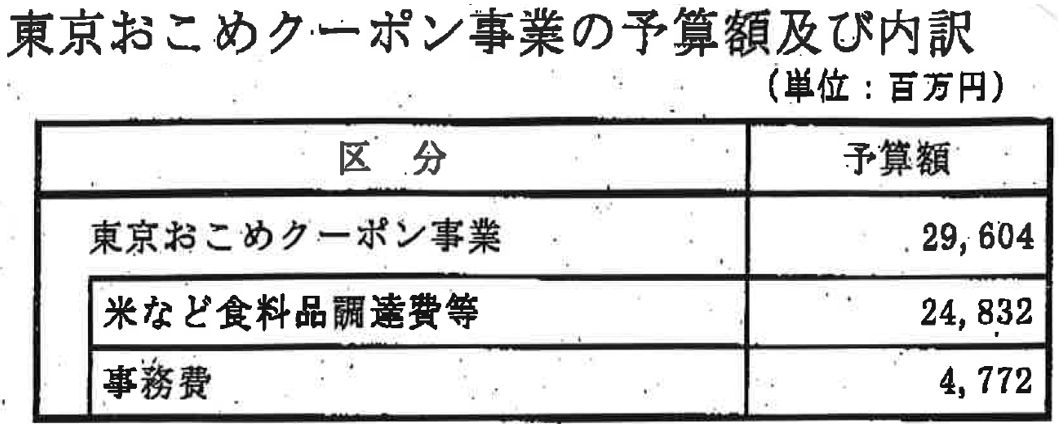 東京おこめクーポン事業の予算額及び内訳
(単位:百万円)
区 分 予算額
東京おこめクーポン事業 29,604
米など食料品調達費等 24,832
事務費 4,772